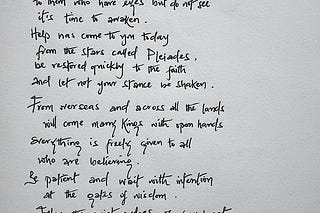 to them who have eyes but do not see
it's time to awaken.
Help has come to you today
from the stars called Pleiades,
be restored quickly to the faith
and let not your stance be shaken.
From overseas and across all the lands
will come many Kings with open hands
Everything is freely given to all
who are believing.
Be patient and wait with intention
at the gates of wisdom.